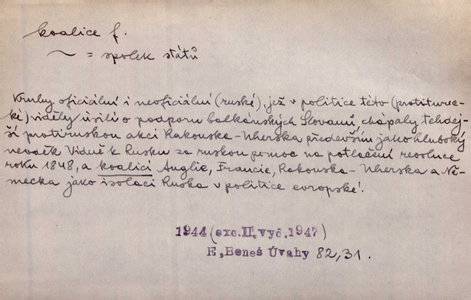 koalice f.
~ = spolek států
Kruhy oficiální i neoficiální (ruské), jež v politice této (protiturec-
ké) viděly úsilí o podporu balkánských Slovanů, chápaly tehdej-
ší protiruskou akci Rakouska-Uherska především jako hluboký
nevděk Vídně k Rusku za ruskou pomoc na potlačení revoluce
roku 1848, a koalici Anglie, Francie, Rakouska-Uherska a Ně-
mecka jako isolaci Ruska v politice evropské!
1944 (exc. II. vyd. 1947)
E. Beneš Úvahy 82,31.